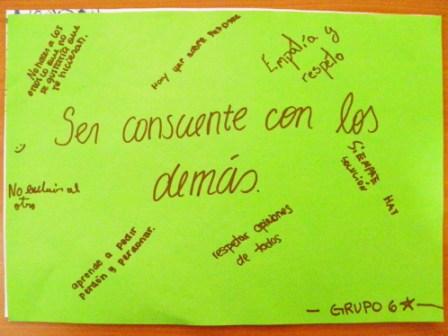 No hacer a los
otros lo que no
te gustaría que
te hicieran.
Hay que saber perdonar
Empatía y
respeto
Ser consciente con los
demás.
SIEMPRE HAY
SOLUCIÓN
No excluir al
otro
aprende a pedir
perdón y perdonar.
respetar opiniones
de todos
- GRUPO 6 ★ -